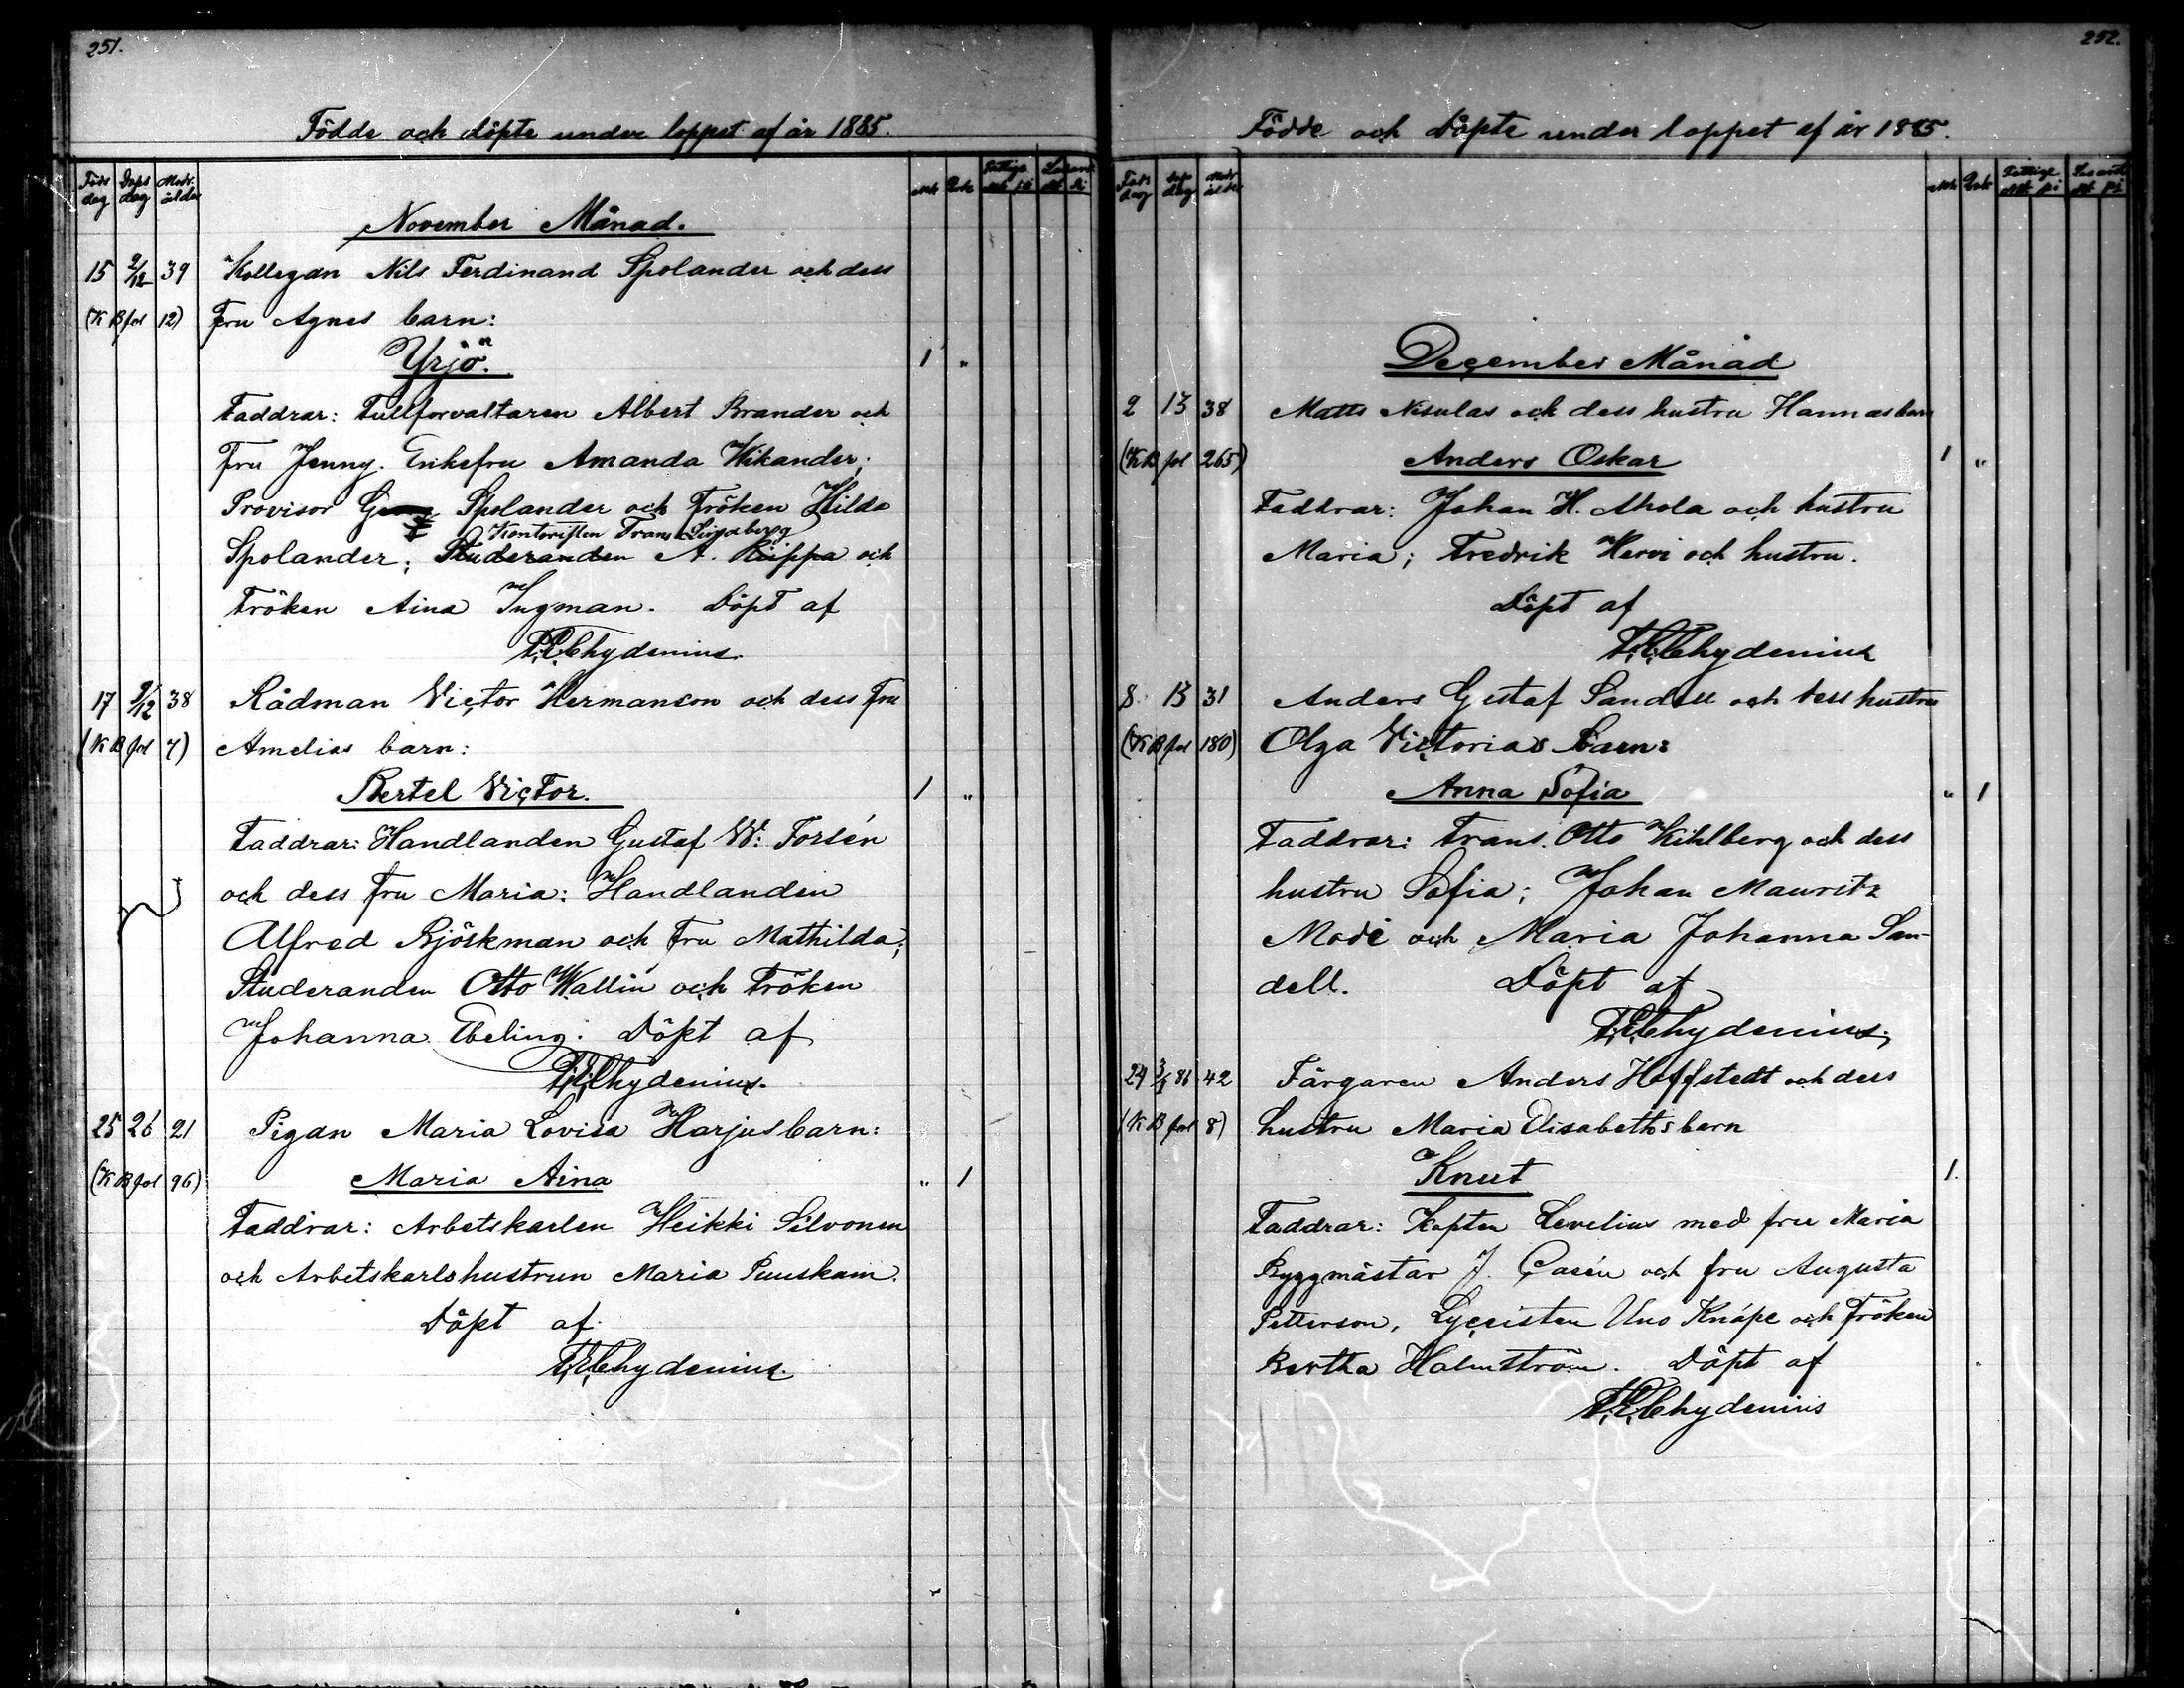 251.
Födde och döpte under loppet af år 1885.
Föds dag Dops dag Modr. ålder
November Månad.
15 9/12 39 Kollegan Nils Ferdinand Spolander och dess
(KB fol 12) Fru Agnes barn:
Yrjö. 1 "
Faddrar: Tullförvaltaren Albert Brander och
Fru Jenny. Enkefru Amanda Wikander;
Provisor Spolander och Fröken Hilda
Kontoristen Frans
Spolander; Studeranden A. och
Fröken Aina Ingman. Döpt af
Chydenius.
17 9/12 38 Rådman Victor Hermanson och dess Fru
(KB fol 7) Amelias barn:
Bertel Victor. 1 "
Faddrar: Handlanden Gustaf W: Forsén
och dess Fru Maria: Handlanden
Alfred Björkman och Fru Mathilda;
Studeranden Otto Wallin och Fröken
Johanna Ebeling. Döpt af
Chydenius.
25 26 21 Pigan Maria Lovisa Harjus barn:
(KB fol 96) Maria Aina " 1
Faddrar: Arbetskarlen Heikki Silvonen
och Arbetskarlshustrun Maria
Döpt af
Chydenius.
252.
Födde och Döpte under loppet af år 1885.
Föds dag Dop dag Modr. ålder
December Månad
2 13 38 Matts Nisulas och dess hustru Hannas barn
(KB fol 265) Anders Oskar 1 "
Faddrar: Johan H. Ahola och hustru
Maria; Fredrik Hervi och hustru.
Döpt af
Chydenius
8 13 31 Anders Gustaf Sandell och dess hustru
(KB fol 180) Olga Victorias Barn:
Anna Sofia " 1
Faddrar: Frans Otto Kihlberg och dess
hustru Sofia; Johan Mauritz
Modé och Maria Johanna San-
dell. Döpt af
Chydenius.
24 3/1 86 42 Färgaren Anders Hoffstedt och dess
(KB fol 8) hustru Maria Elisabeths barn
Knut 1.
Faddrar: Kapten Levelius med fru Maria
Byggmästar J. Casén och fru Augusta
Petterson, Lyceisten Uno Knape och Fröken
Bertha Holmström. Döpt af
Chydenius